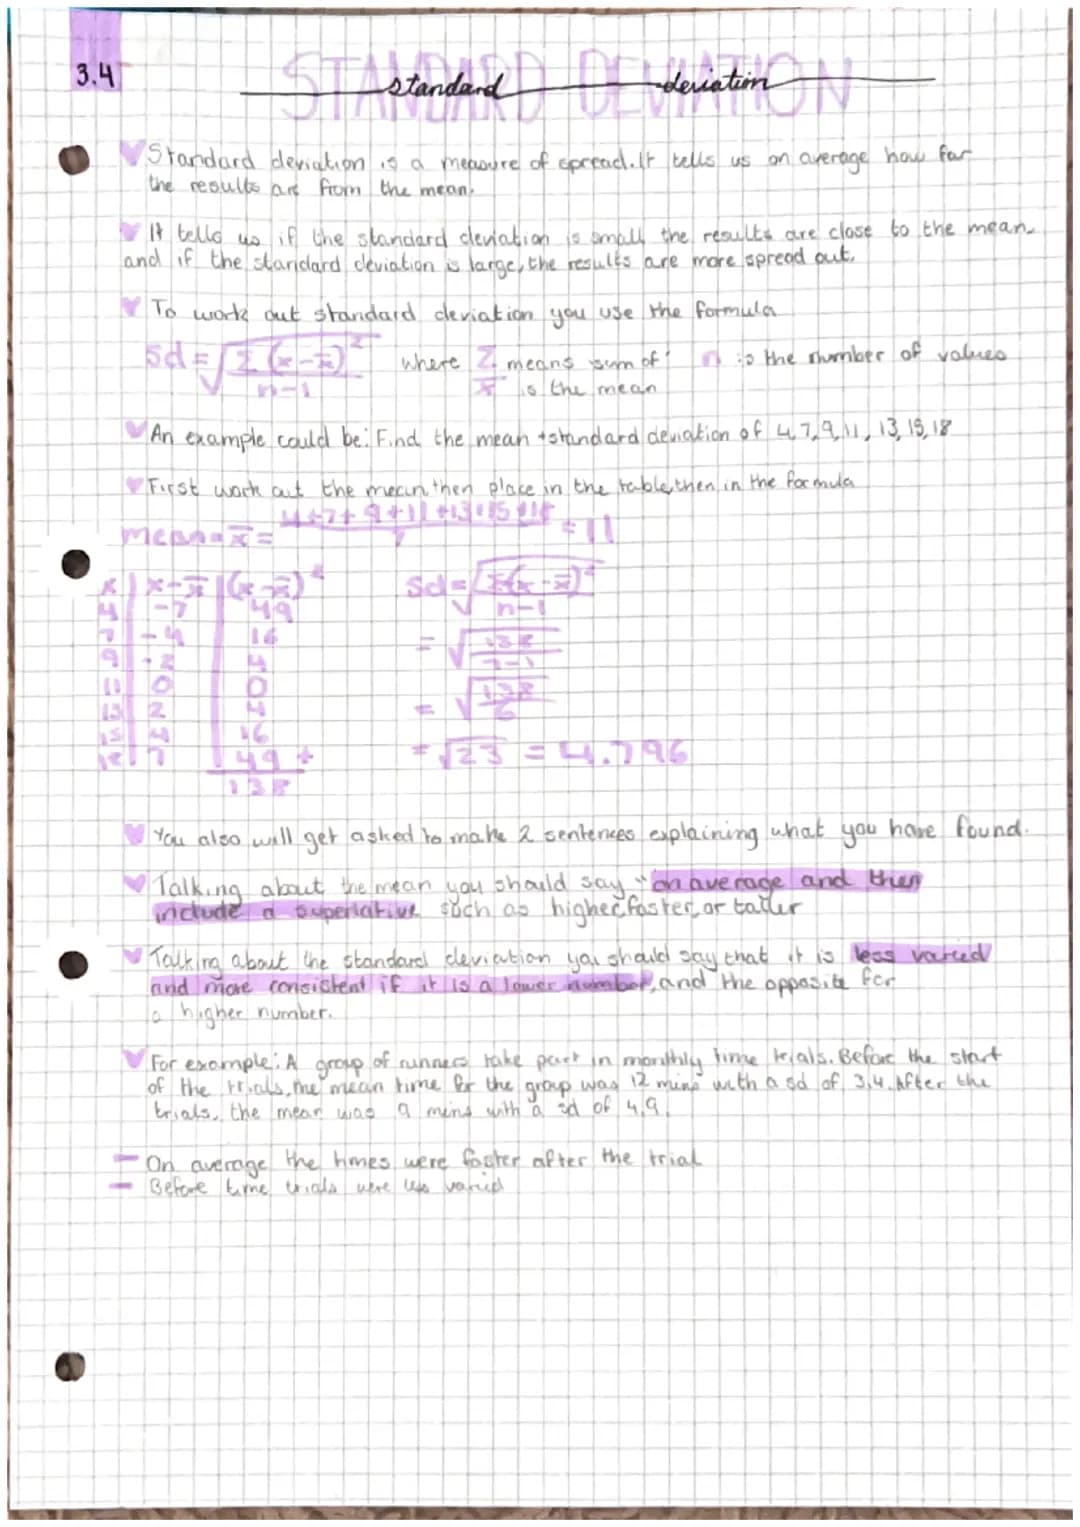 3.4
STANDARD DEVIATION
standard deviation
Standard deviation is a measure of spread. It tells us on average how far
the results are from the mean.
It tells us if the standard deviation is small, the results are close to the mean
and if the standard deviation is large, the results are more spread out.
To work out standard deviation you use the formula
Sd = √ Σ(x-x̄)² / n-1 where Σ means 'sum of' n is the number of values
x̄ is the mean
An example could be: Find the mean + standard deviation of 4,7,9,11,13,15,18
First work out the mean, then place in the table, then in the formula
mean = x̄ = 4+7+9+11+13+15+18 / 7 = 11
x | x-x̄ | (x-x̄)²
4 | -7 | 49
7 | -4 | 16
9 | -2 | 4
11 | 0 | 0
13 | 2 | 4
15 | 4 | 16
18 | 7 | 49 +
138
Sd = √ Σ(x-x̄)² / n-1
= √ 138 / 7-1
= √ 138 / 6
= √23 = 4.796
You also will get asked to make 2 sentences explaining what you have found.
Talking about the mean you should say "on average and then
include a superlative such as higher, faster, or taller
Talking about the standard deviation you should say that it is less varied
and more consistent if it is a lower number, and the opposite for
a higher number.
For example: A group of runners take part in monthly time trials. Before the start
of the trials, the mean time for the group was 12 mins with a sd of 3,4. After the
trials, the mean was 9 mins with a sd of 4,9.
- On average the times were faster after the trial
- Before time trials were less varied